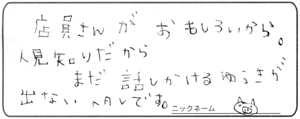 店員さんが おもしろいから。
人見知りだから
まだ 話しかけるゆうきが
出ない ヘタレです。
ニックネーム